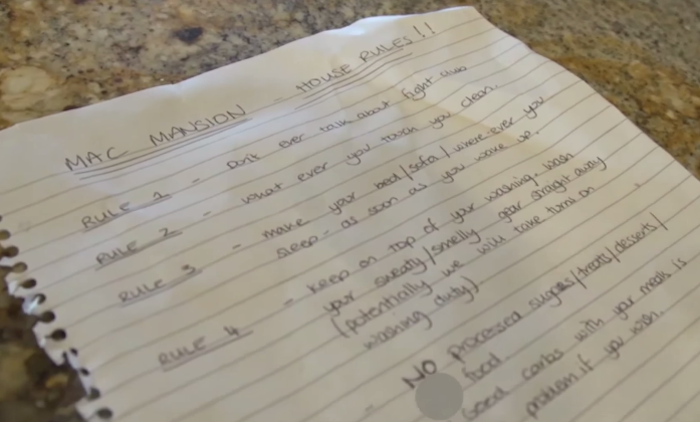 MAC MANSION - HOUSE RULES!!
RULE 1 - Don't ever talk about fight club
RULE 2 - what ever you touch you clean.
RULE 3 - make your bed/sofa/where-ever you
sleep - as soon as you wake up.
RULE 4 - Keep on top of your washing. Wash
your sweaty/smelly gear straight away
(potentially we will take turns on
washing duty).
- NO processed sugars/treats/desserts/
food.
Good carbs with your meals is
problem if you wish.